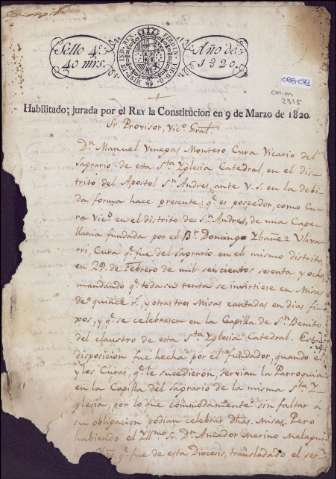 Sello 4.º
40 mrs.
Año de
1820.
Habilitado; jurada por el REY la Constitucion en 9 de Marzo de 1820.
Sr Provisor, Vic.º Gral
Dn. Manuel Venegas Montero Cura Vicario del
Sagrario de esta Sta Iglesia Catedral, en el dis
trito del Apostol Sn. Andres, ante V.S. en la debi
da forma hace presente, qe. es posehedor, como Cu
ra Vicº en el distrito de Sn. Andres, de una Cape
llania fundada por el Br. Domingo Ibañez
Cura qe. fue del Sagrario en el mismo distrito
en 29 de Febrero de mil seiscientos setenta y ocho
mandando qe. toda su renta se invirtiese en Misas
de y otras tres Misas cantadas en dias
y qe. se celebrasen en la Capilla de Sn. Benito
del claustro de esta Sta Iglesia Catedral. Esta
disposicion fue hecha por el fundador, quando el
y los Curas, qe. le sucedieron, servian la Parroquia
en la Capilla del Sagrario de la misma Sta
Iglesia, por lo que comodamente sin faltar a
su obligacion podian celebrar dhas. Misas. Pero
habiendo el Illmo Sr. Dn. Merino
qe. fue de esta Diocesis, transladado el